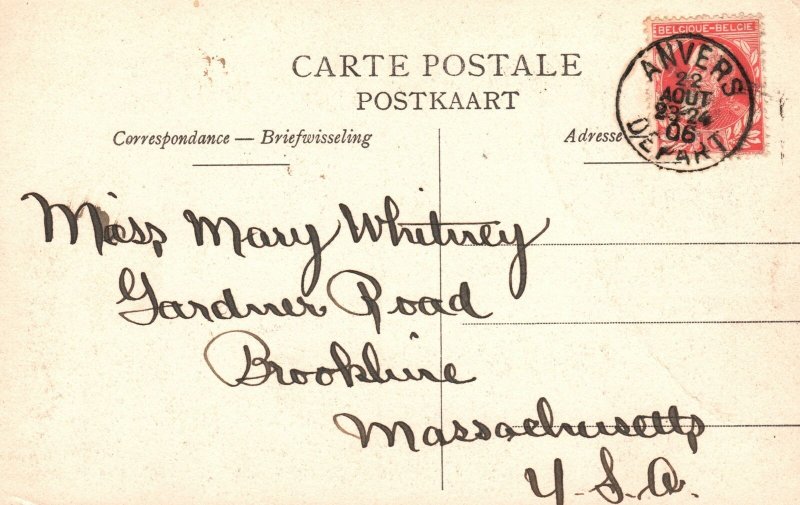 CARTE POSTALE
POSTKAART
BELGIQUE-BELGIE
ANVERS
22
AOUT
23-24
06
DEPART
Correspondance — Briefwisseling
Adresse
Miss Mary Whitney
Gardner Road
Brookline
Massachusetts
U.S.A.